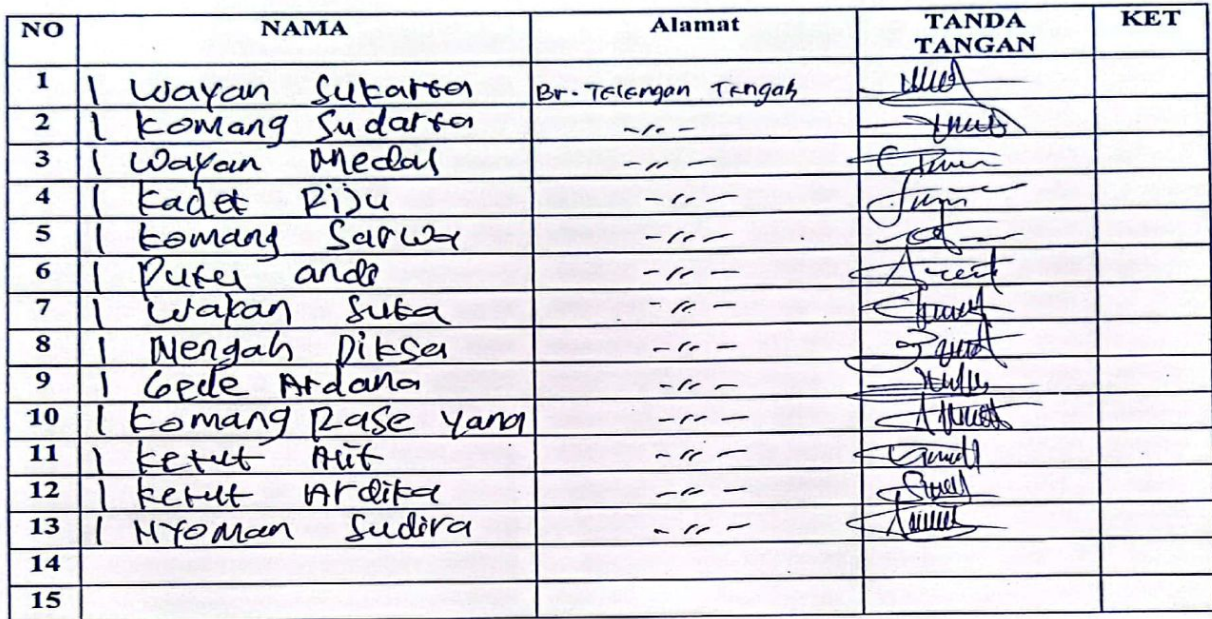 NO NAMA Alamat TANDA TANGAN KET
1 I Wayan Sukarta Br. Telengan Tengah
2 I Komang Sudarta -〃-
3 I Wayan Medal -〃-
4 I Kadek Piju -〃-
5 I Komang Sarwa -〃-
6 I Putu anda -〃-
7 I Wayan Suka -〃-
8 I Nengah Diksa -〃-
9 I Gede Ardana -〃-
10 I Komang Rase yana -〃-
11 I Ketut Alit -〃-
12 I Ketut Ardika -〃-
13 Nyoman Sudira -〃-
14
15